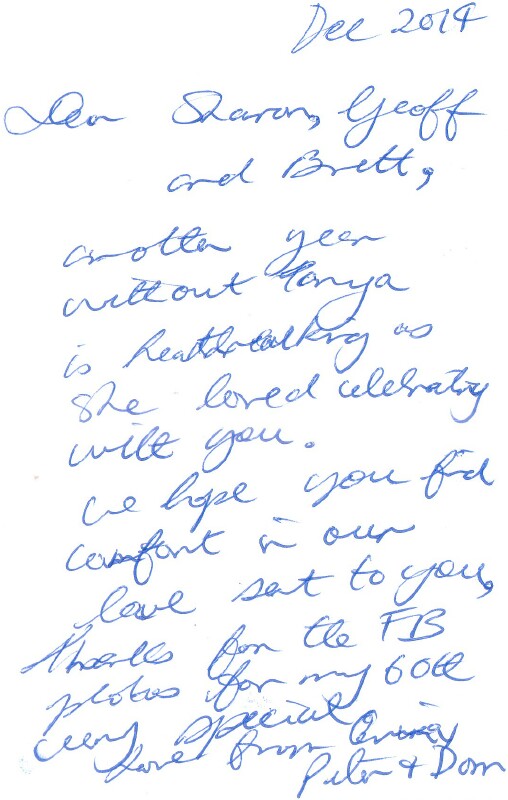 Dec 2014
Dear Sharon, Geoff
and Brett,
another year
without Tanya
is heartbreaking as
she loved celebrating
with you.
we hope you find
comfort in our
love sent to you,
thanks for the FB
photos for my 60th
very special
love from
Peter + Dom